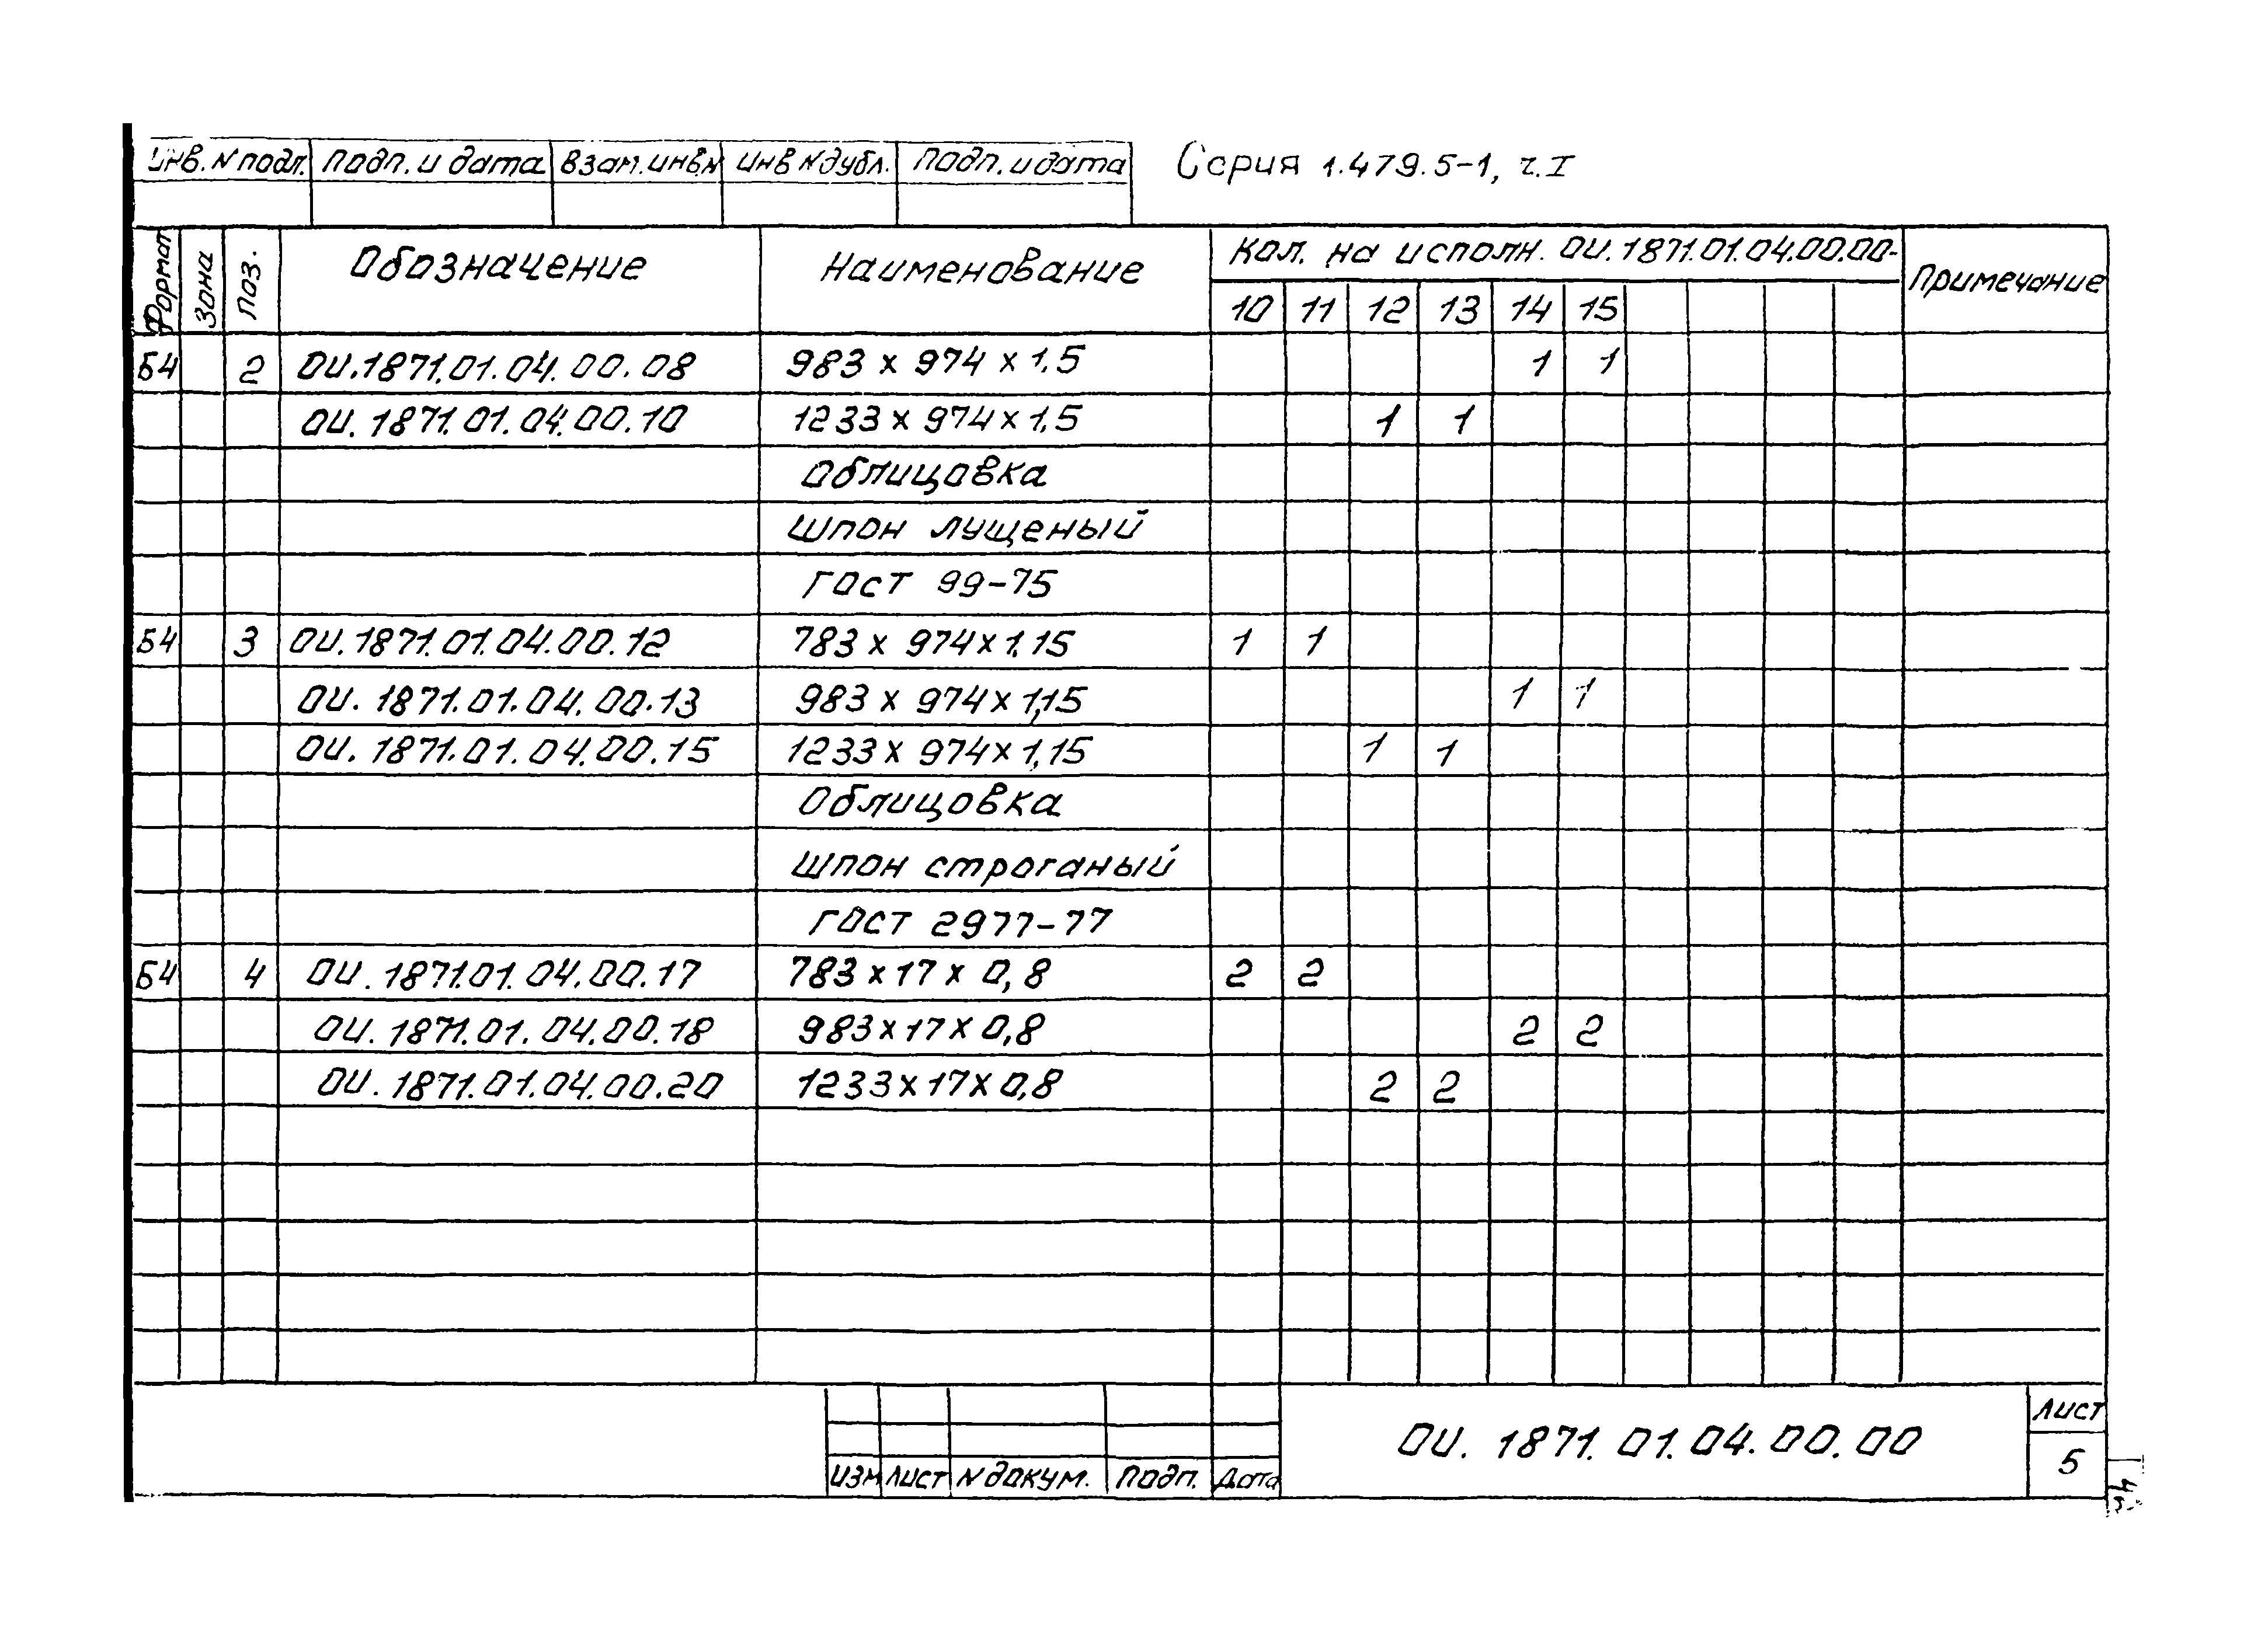 Инв. N подл. Подп. и дата Взам. инв. N Инв N дубл. Подп. и дата Серия 1.479.5-1, ч. I
Формат Зона Поз. Обозначение Наименование Кол. на исполн. ОИ.1871.01.04.00.00- Примечание
10 11 12 13 14 15
Б4 2 ОИ.1871.01.04.00.08 983 х 974 х 1.5 1 1
ОИ.1871.01.04.00.10 1233 х 974 х 1,5 1 1
Облицовка
Шпон лущеный
ГОСТ 99-75
Б4 3 ОИ.1871.01.04.00.12 783 х 974 х 1.15 1 1
ОИ.1871.01.04.00.13 983 х 974 х 1,15 1 1
ОИ.1871.01.04.00.15 1233 х 974 х 1,15 1 1
Облицовка
Шпон строганый
ГОСТ 2977-77
Б4 4 ОИ.1871.01.04.00.17 783 х 17 х 0,8 2 2
ОИ.1871.01.04.00.18 983 х 17 х 0,8 2 2
ОИ.1871.01.04.00.20 1233 х 17 х 0,8 2 2
ОИ.1871.01.04.00.00 Лист
5
Изм Лист N докум. Подп. Дата